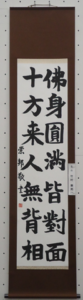 佛身圓滿皆對面
十方来人無背相